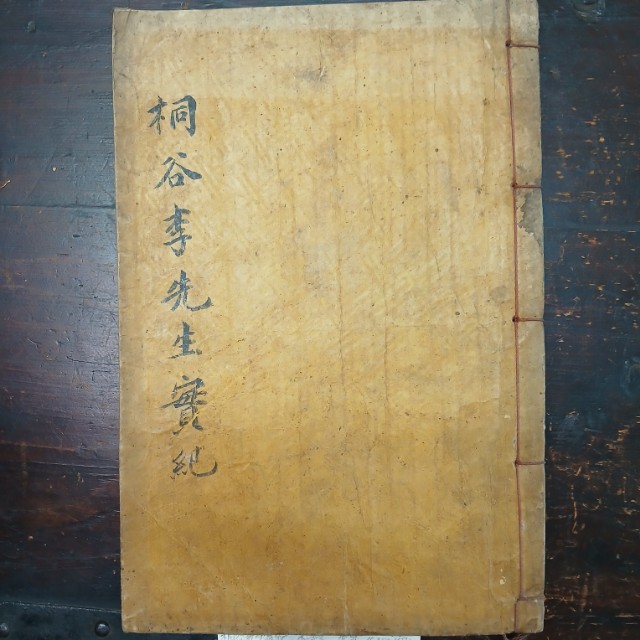 桐谷李先生實紀